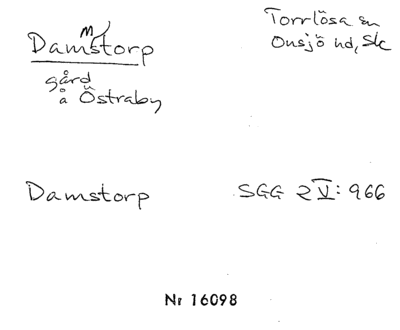 Dammstorp
Torrlösa sn
Onsjö hd, Sk
gård
å Östraby
Damstorp
SGG 2 V: 966
Nr 16098